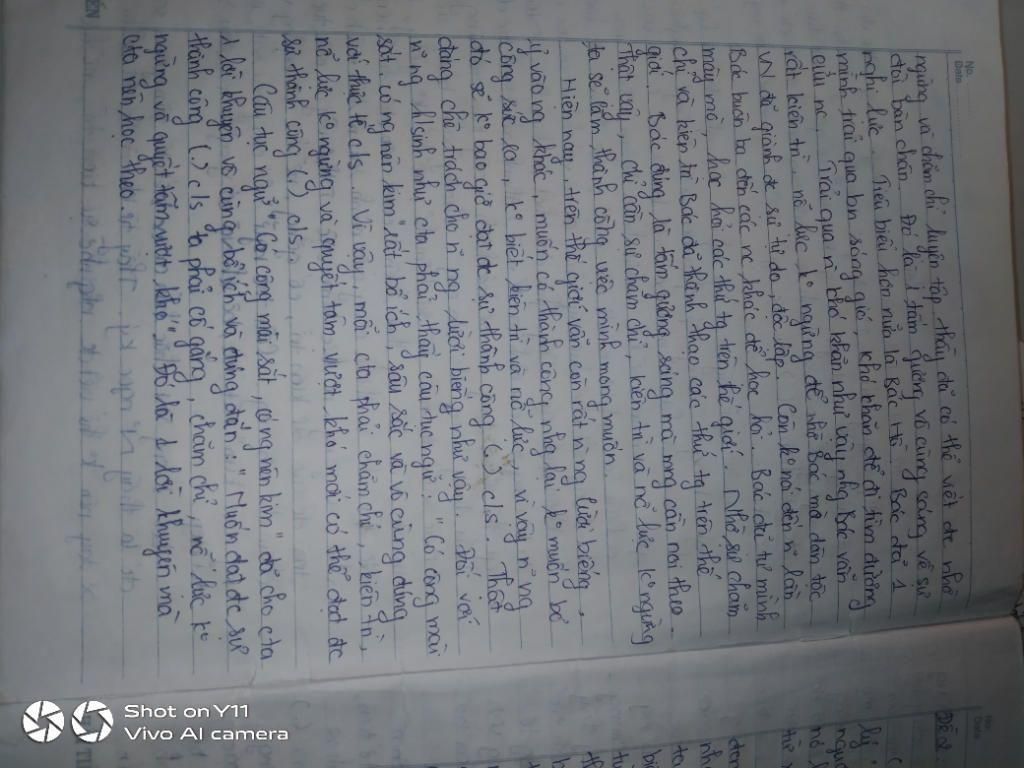 No.
Date
ngừng và chăm chỉ luyện tập, thầy đã có thể viết đc nhờ
đôi bàn chân. Đó là 1 tấm gương vô cùng sáng về sự
nghị lực. Tiêu biểu hơn nữa là Bác Hồ. Bác đã 1
mình trải qua bn sóng gió, khó khăn để đi tìm đường
cứu nc. Trải qua n~ khó khăn như vậy nhg Bác vẫn
rất kiên trì, nỗ lực, k° ngừng để nhờ Bác mà dân tộc
VN đã giành đc sự tự do, độc lập. Còn k° nói đến n~ lần
Bác buôn ba đến các nc khác để học hỏi. Bác đã tự mình
mày mò, học hỏi các thứ tg trên thế giới. Nhờ sự chăm
chỉ và kiên trì Bác đã thành thạo các thứ tg trên thế
giới. Bác đúng là tấm gương sáng mà mng cần noi theo.
Thật vậy, chỉ cần sự chăm chỉ, kiên trì và nỗ lực k° ngừng
ta sẽ làm thành công việc mình mong muốn.
Hiện nay, trên thế giới vẫn còn rất n~ ng lười biếng,
ỷ vào ng khác, muốn có thành công nhg lại k° muốn bỏ
công sức ra, k° biết kiên trì và nỗ lực, vì vậy n~ ng
đó sẽ k° bao giờ đạt đc sự thành công (.) c/s. Thật
đáng chê trách cho n~ ng lười biếng như vậy. Đối với
n~ ng h/sinh như cta, phải thấy câu tục ngữ: "Có công mài
sắt, có ng nên kim" rất bổ ích, sâu sắc và vô cùng đúng
với thực tế c/s. Vì vậy, mỗi cta phải chăm chỉ, kiên trì,
nỗ lực k° ngừng và quyết tâm vượt khó mới có thể đạt đc
sự thành công (.) c/s.
Câu tục ngữ "Có công mài sắt, có ng nên kim" đã cho cta
1 lời khuyên vô cùng bổ ích và đúng đắn "Muốn đạt đc sự
thành công (.) c/s ta phải cố gắng, chăm chỉ, nỗ lực k°
ngừng và quyết tâm vượt khó". Đó là 1 lời khuyên mà
cta nên học theo
No.
Date
Đề 2
Shot on Y11
Vivo AI camera